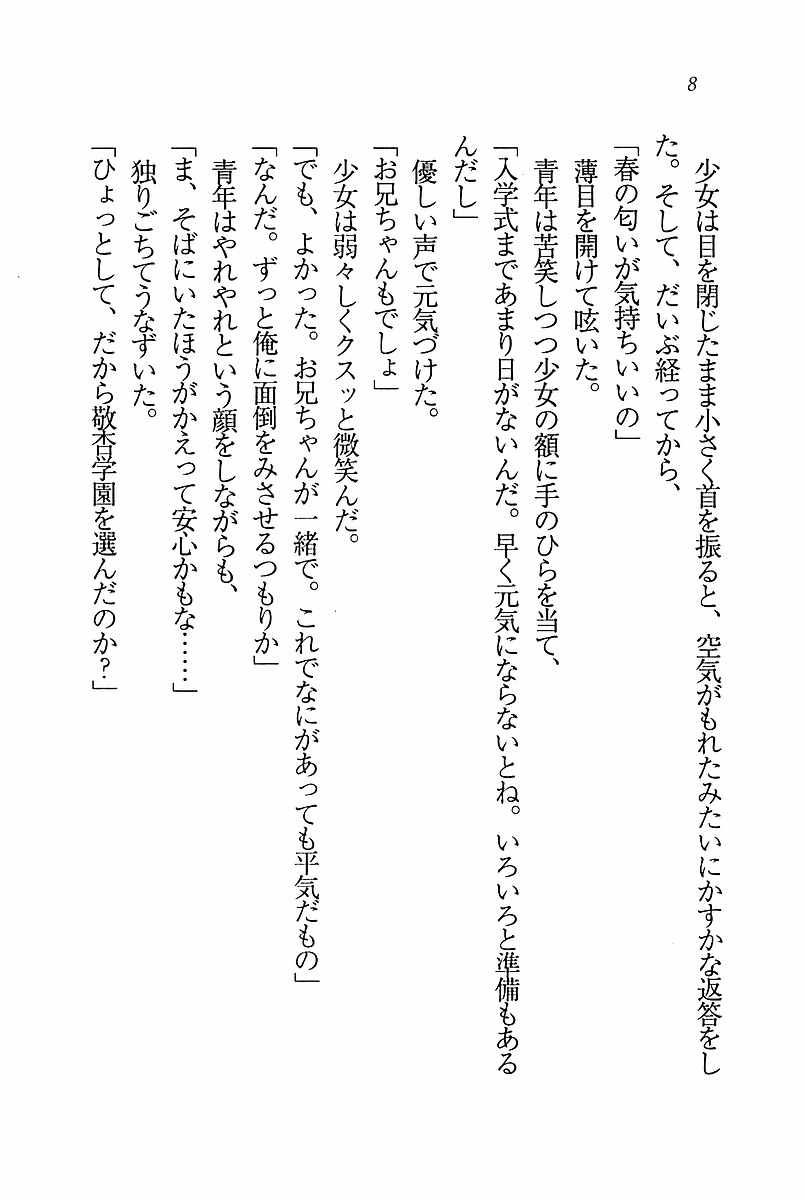 8
　少女は目を閉じたまま小さく首を振ると、空気がもれたみたいにかすかな返答をし
た。そして、だいぶ経ってから、
「春の匂いが気持ちいいの」
　薄目を開けて呟いた。
　青年は苦笑しつつ少女の額に手のひらを当て、
「入学式まであまり日がないんだ。早く元気にならないとね。いろいろと準備もある
んだし」
　優しい声で元気づけた。
「お兄ちゃんもでしょ」
　少女は弱々しくクスッと微笑んだ。
「でも、よかった。お兄ちゃんが一緒で。これでなにがあっても平気だもの」
「なんだ。ずっと俺に面倒をみさせるつもりか」
　青年はやれやれという顔をしながらも、
「ま、そばにいたほうがかえって安心かもな……」
　独りごちてうなずいた。
「ひょっとして、だから敬杏学園を選んだのか?」